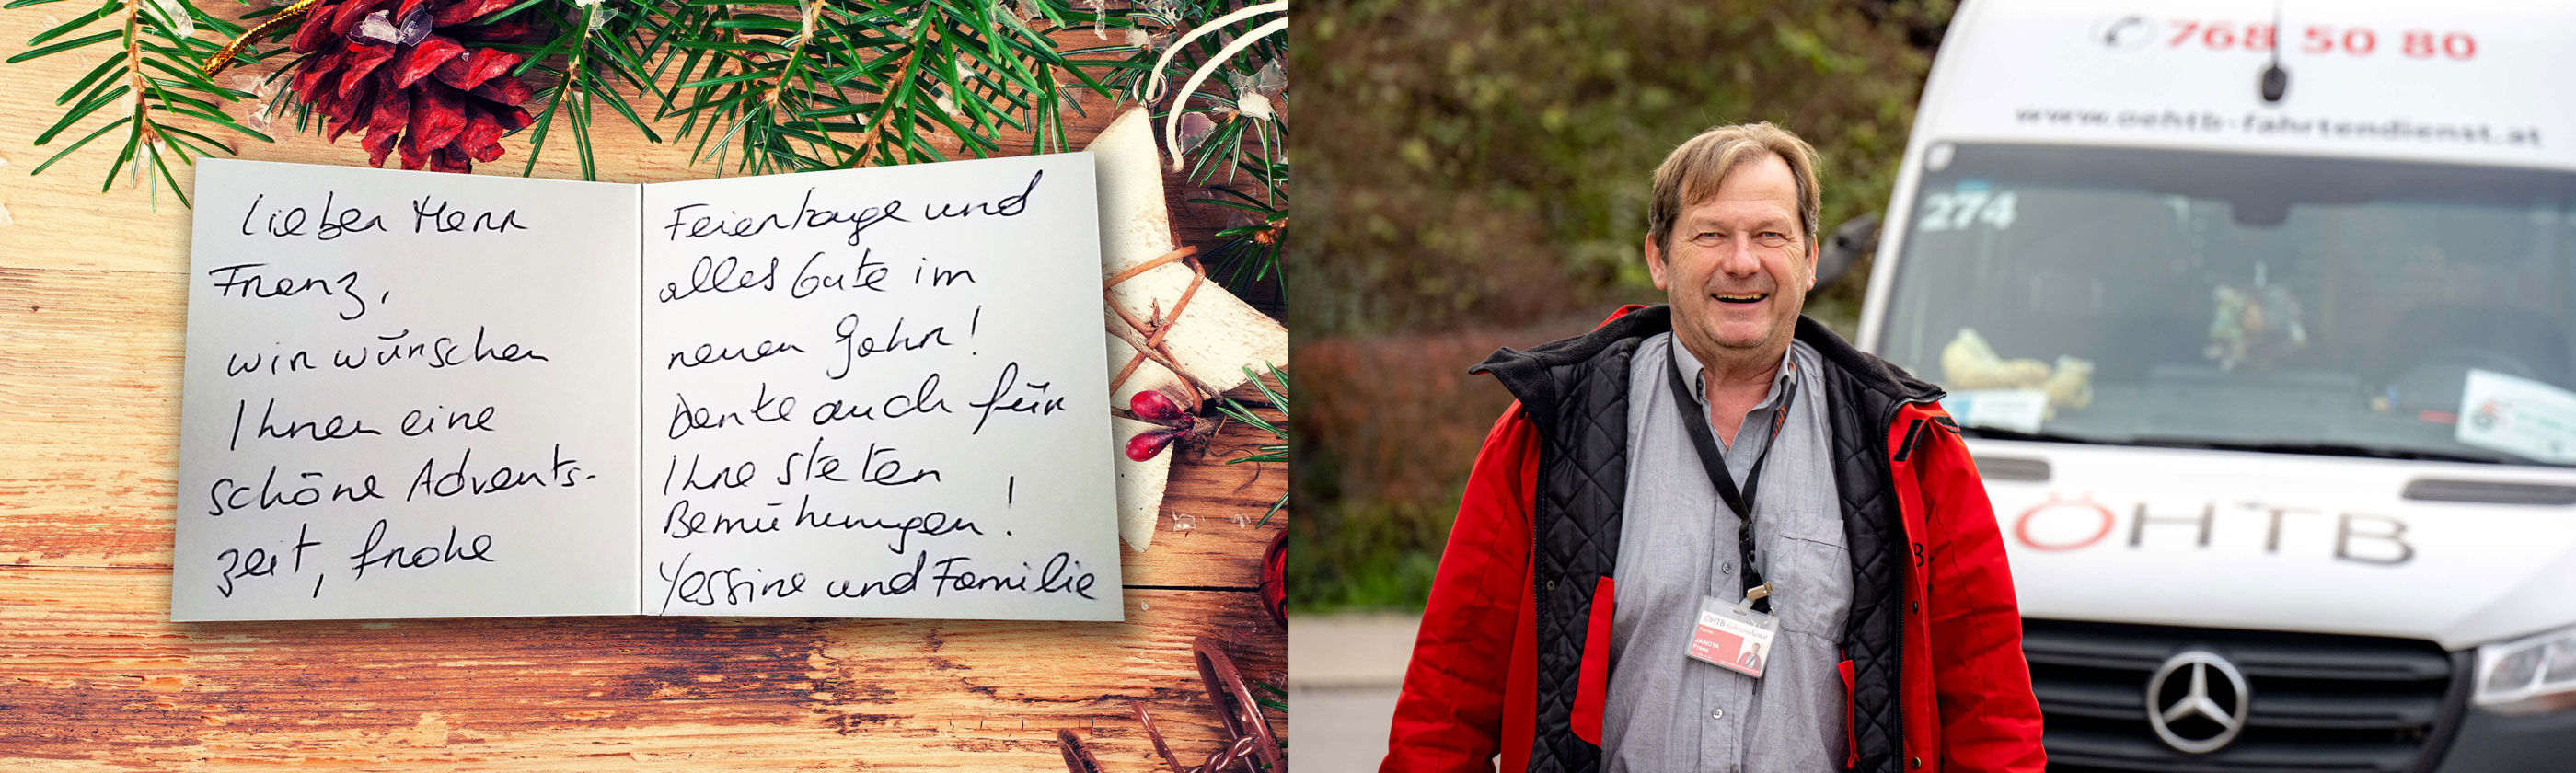 Lieber Herr
Franz,
wir wünschen
Ihnen eine
schöne Advents-
zeit, frohe
Feiertage und
alles Gute im
neuen Jahr!
Danke auch für
Ihre steten
Bemühungen!
Yessine und Familie
768 50 80
www.oehtb-fahrtendienst.at
274
ÖHTB
ÖHTB-fahrtendienst
JANOTA
Franz